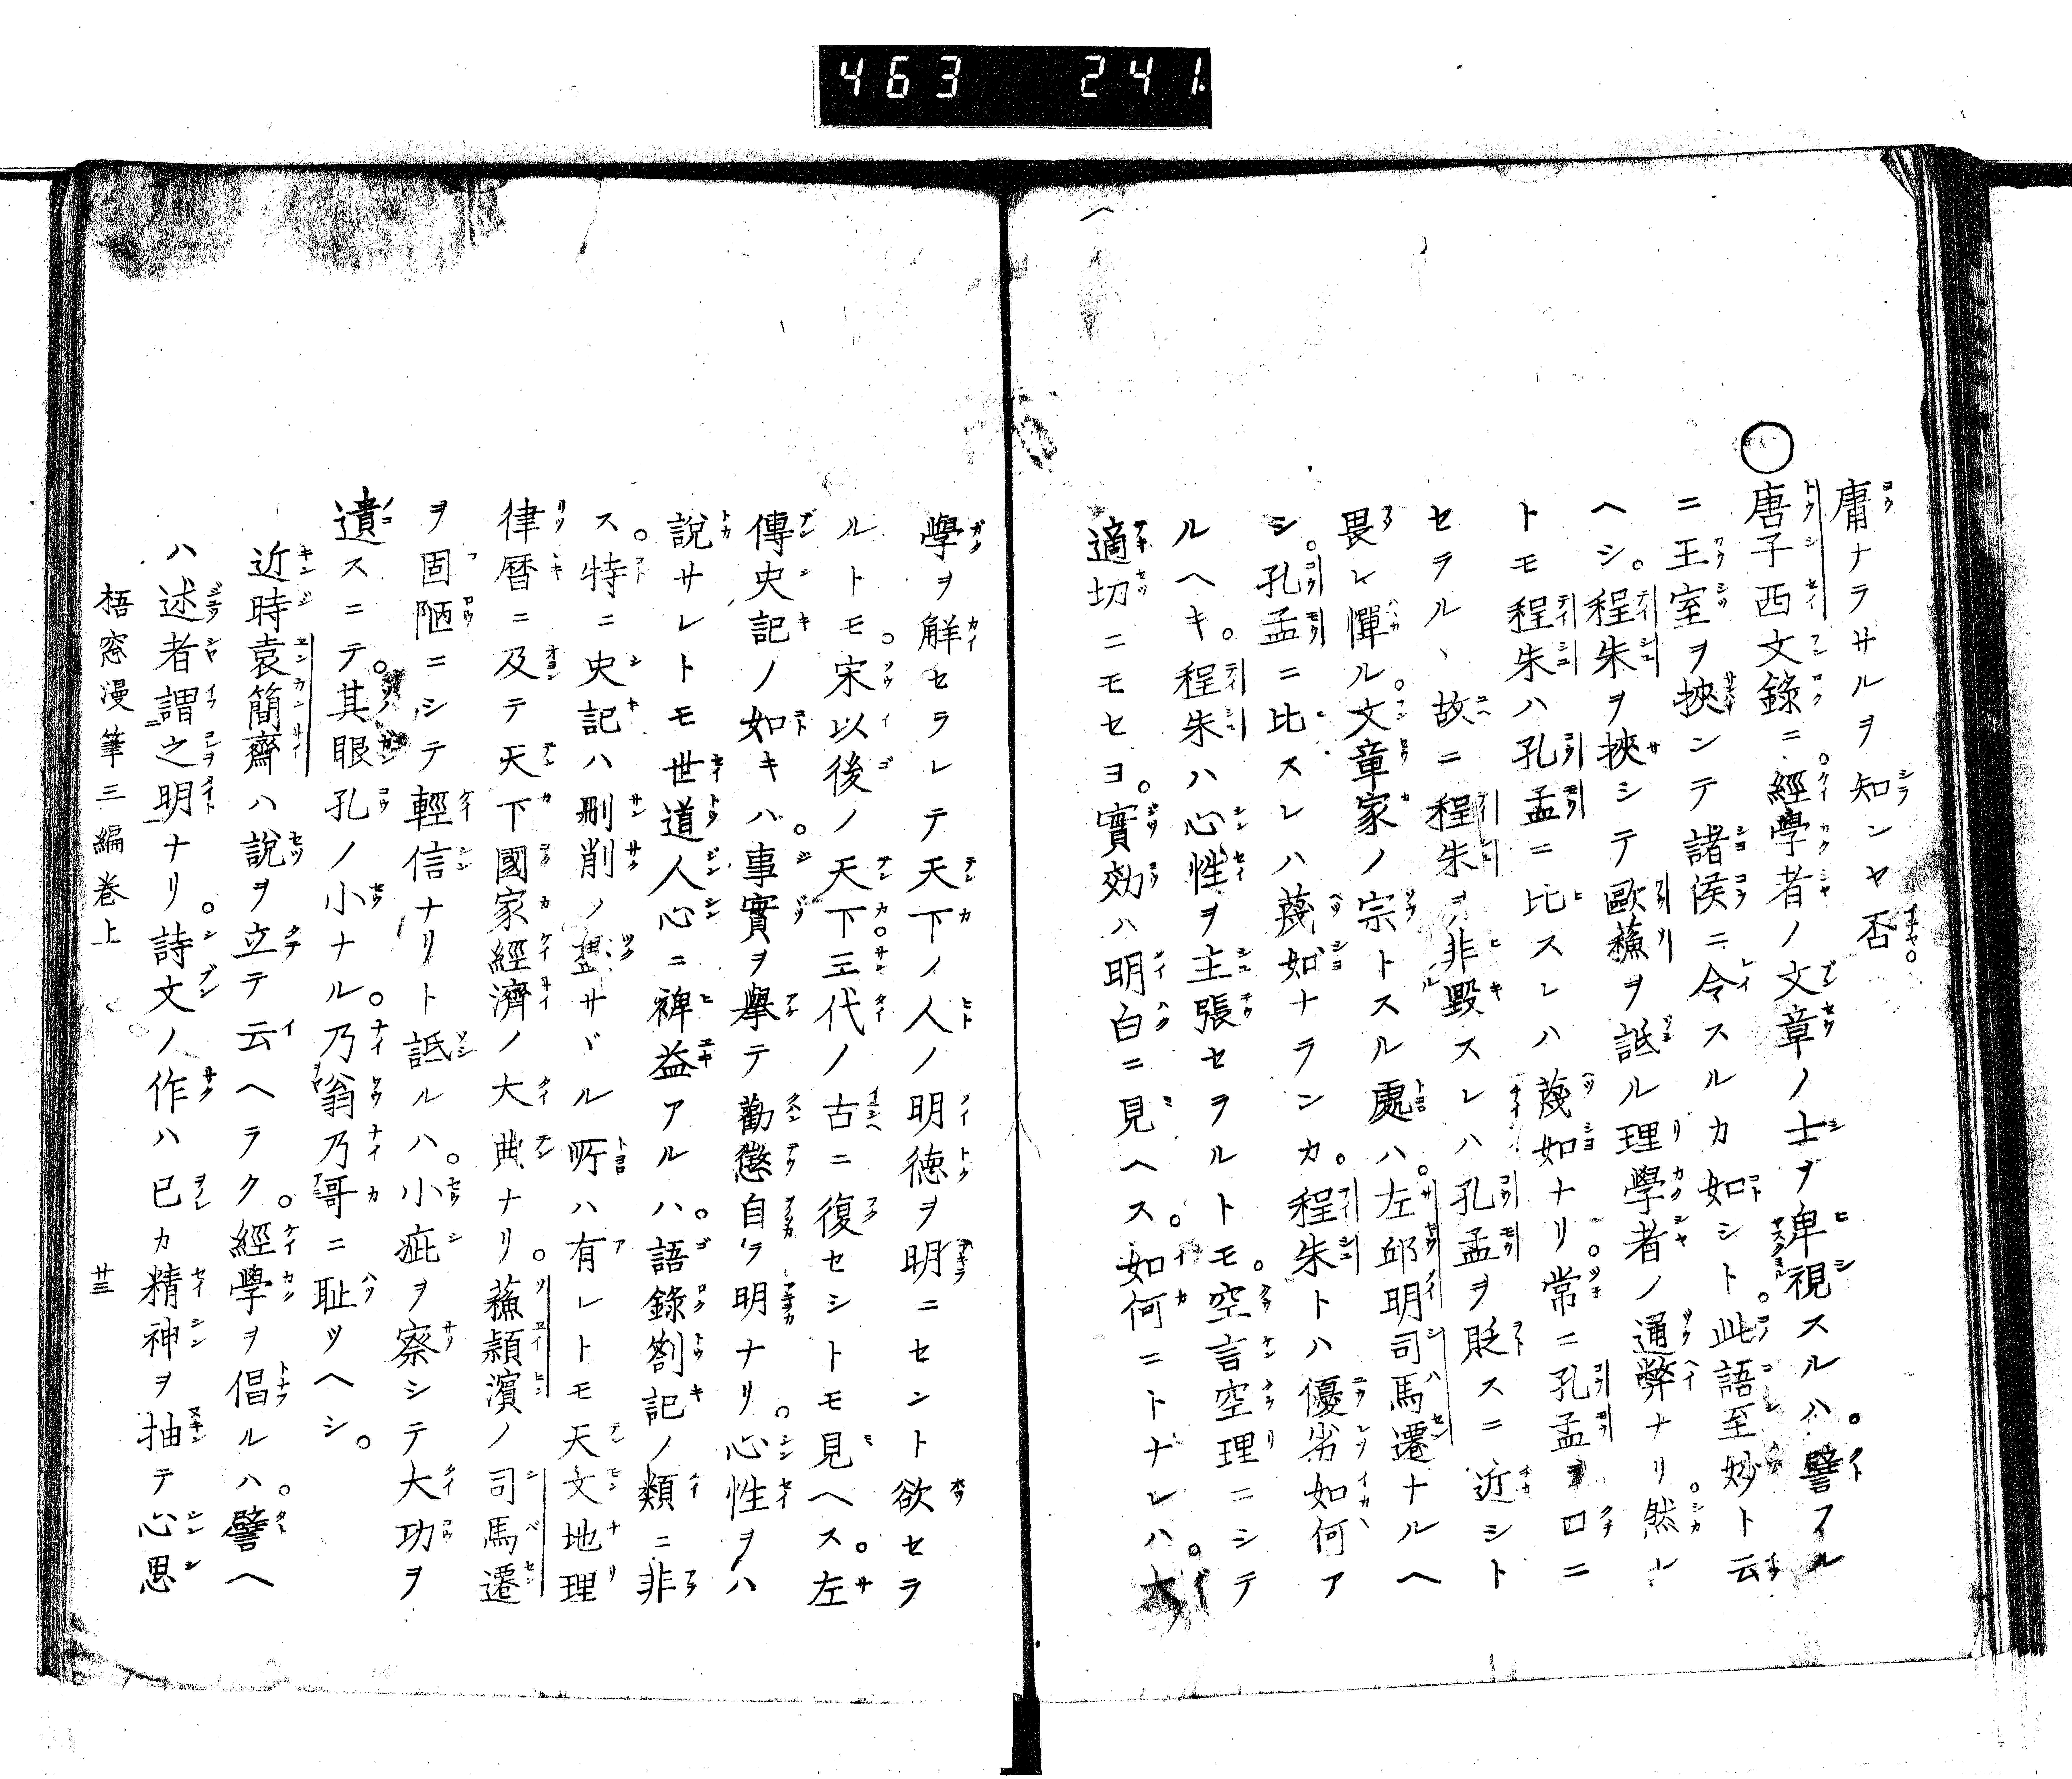 463 241
庸ナラサルヲ知ンヤ否。
○唐子西文錄ニ。經學者ノ文章ノ士ヲ卑視スルハ。譬フル
ニ王室ヲ挾ンテ諸侯ニ令スルカ如シト。此語至妙ト云
ヘシ。程朱ヲ挾シテ歐蘓ヲ詆ル理學者ノ通弊ナリ。然レ
トモ程朱ハ孔孟ニ比スレハ蔑如ナリ。常ニ孔孟ヲ口ニ
セラルヽ故ニ程朱ヲ非毀スレハ孔孟ヲ貶スニ近シト
畏レ憚ル。文章家ノ宗トスル處ハ。左邱明司馬遷ナルヘ
シ。孔孟ニ比スレハ蔑如ナランカ。程朱トハ優劣如何ア
ルヘキ。程朱ハ心性ヲ主張セラルトモ。空言空理ニシテ
適切ニモセヨ。實効ハ明白ニ見ヘス。如何ニトナレハ。大
學ヲ解セラレテ天下ノ人ノ明徳ヲ明ニセント欲セラ
ルトモ。宋以後ノ天下三代ノ古ニ復セシトモ見ヘス。左
傳史記ノ如キハ。事實ヲ擧テ勸懲自ラ明ナリ。心性ヲハ
說サレトモ世道人心ニ裨益アルハ。語錄劄記ノ類ニ非
ス。特ニ史記ハ刪削ノ盡サヾル所ハ有レトモ天文地理
律暦ニ及テ天下國家經濟ノ大典ナリ。蘓穎濱ノ司馬遷
ヲ固陋ニシテ輕信ナリト詆ルハ。小疵ヲ察シテ大功ヲ
遺スニテ。其眼孔ノ小ナル。乃翁乃哥ニ耻ツヘシ。
近時袁簡齋ハ說ヲ立テ云ヘラク。經學ヲ倡ルハ。譬ヘ
ハ述者謂之明ナリ。詩文ノ作ハ己カ精神ヲ抽テ心思
梧窓漫筆三編巻上 廿三